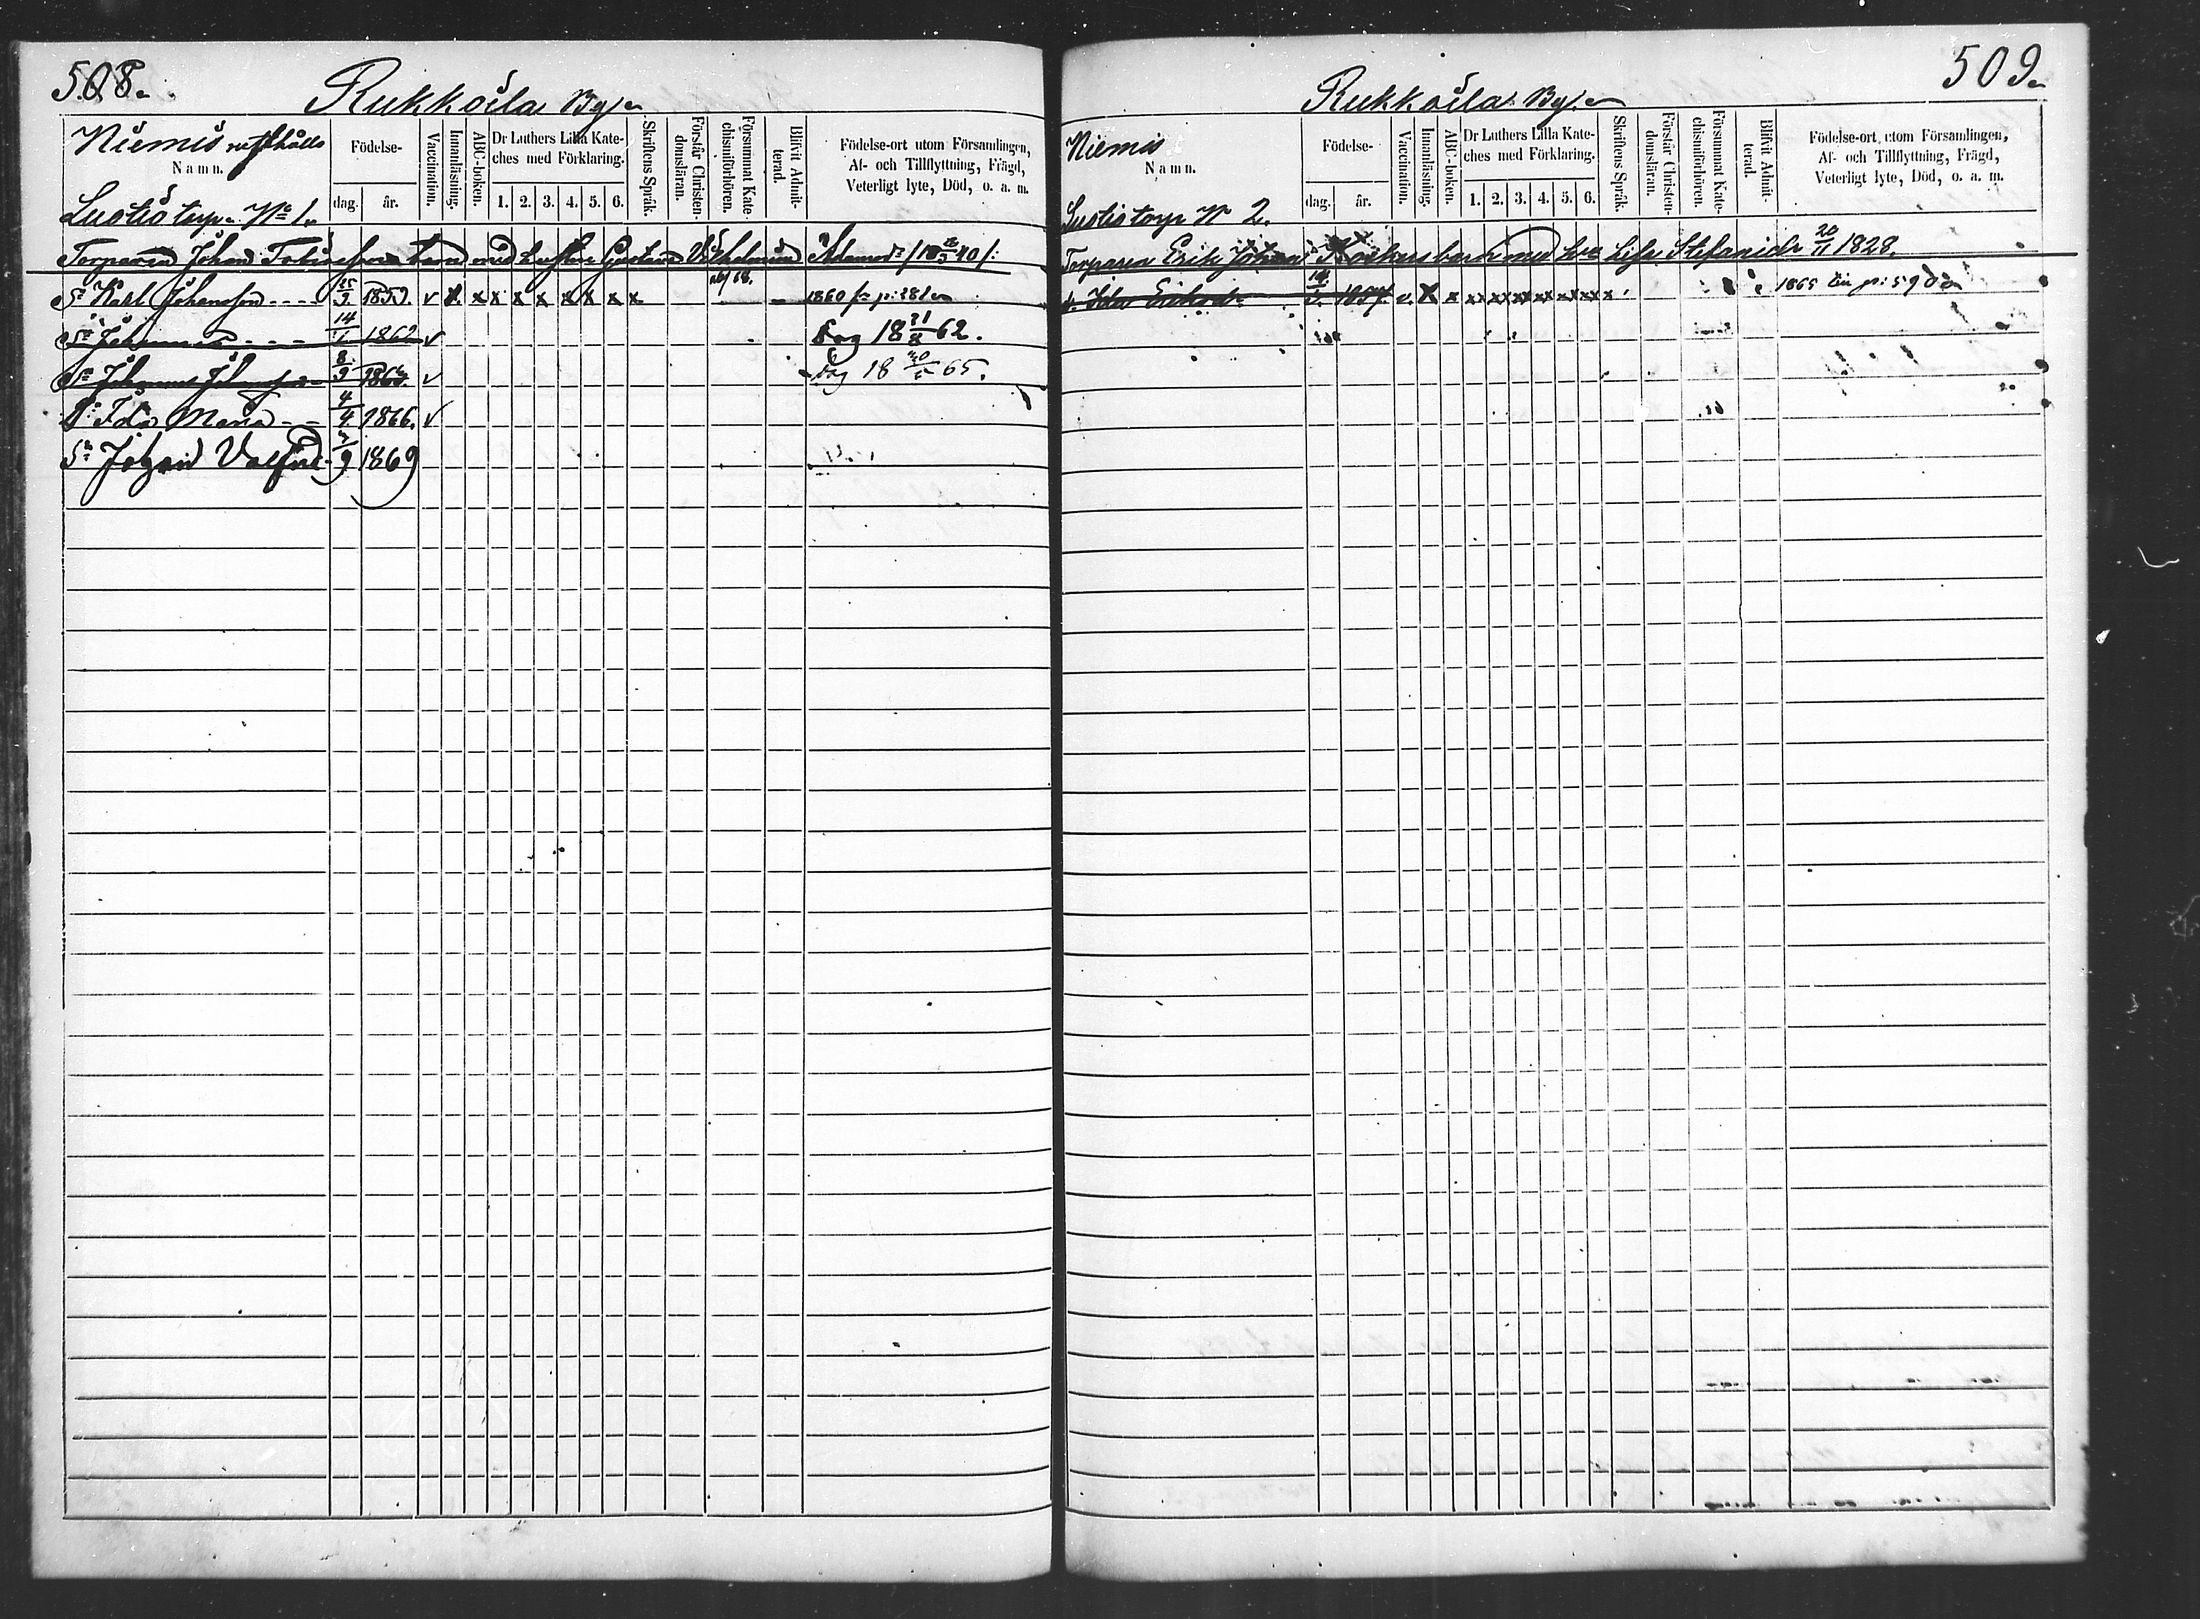 508.
Rukkoila By
Niemis rusthålls
Namn.
Födelse-
dag.
år.
Vaccination.
Innanläsning.
ABC-boken.
Dr Luthers Lilla Kate-
ches med Förklaring.
1. 2. 3. 4. 5. 6.
Skriftens Språk.
Förstår Christen-
domsläran.
Försummat Kate-
chismiförhören.
Blifvit Admit-
terad.
Födelse-ort utom Församlingen,
Af- och Tillflyttning, Frägd,
Veterligt lyte, Död, o. a. m.
Torparen Johan barn med hustru Gustava Vilhelmina Adamsdr
Sn Karl Johansson 25/9 1859. v x x x x x x x x x 68. 1860
Sn Johannes 14/1 1862 v Dog 18 21/8 62.
Sn Johannes Johansson 8/9 v Dog 18 65.
Dr Ida Maria 4/4 1866. v
Sn Johan Valfrid 7/9 1869
509.
Rukkoila By
Niemis
Namn.
torp No 2.
Födelse-
dag.
år.
Vaccination.
Innanläsning.
ABC-boken.
Dr Luthers Lilla Kate-
ches med Förklaring.
1. 2. 3. 4. 5. 6.
Skriftens Språk.
Förstår Christen-
domsläran.
Försummat Kate-
chismiförhören.
Blifvit Admit-
terad.
Födelse-ort utom Församlingen,
Af- och Tillflyttning, Frägd,
Veterligt lyte, Död, o. a. m.
Torparen Erik Johan barn med Lisa Stefansdr 20/11 1828.
dr Ida Eriksdr 1857 v. x x 1865